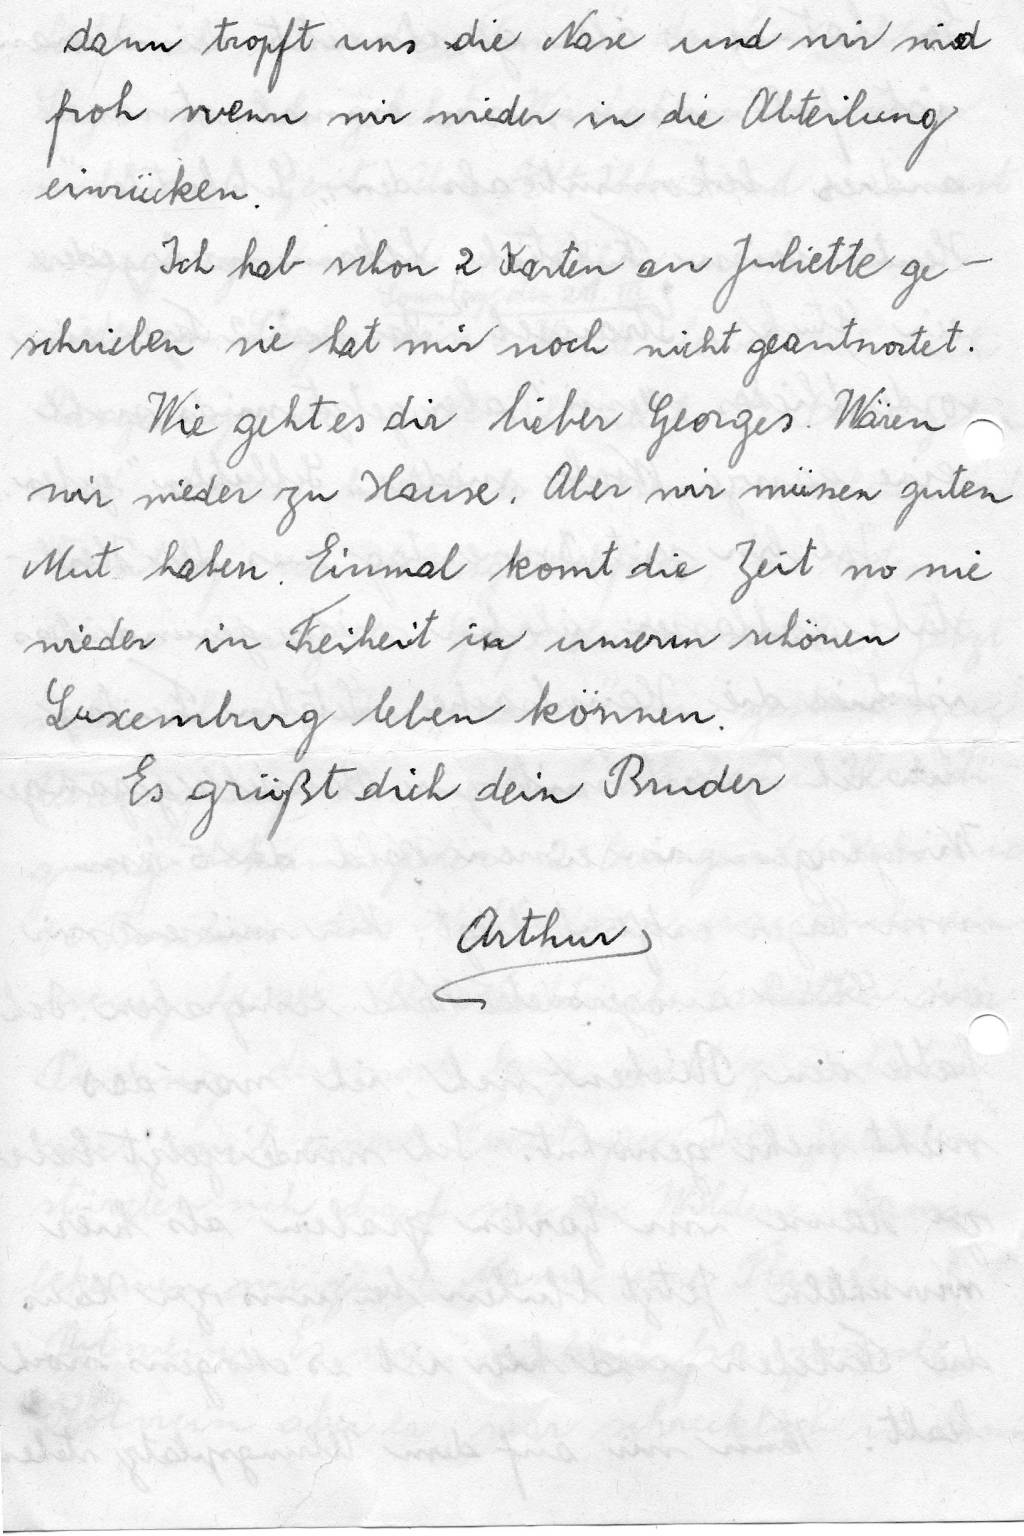 dann tropft uns die Nase und wir sind
froh wenn wir wieder in die Abteilung
einrücken.
Ich hab schon 2 Karten an Juliette ge-
schrieben sie hat mir noch nicht geantwortet.
Wie geht es dir lieber Georges. Wären
wir wieder zu Hause. Aber wir müssen guten
Mut haben. Einmal komt die Zeit wo wie
wieder in Freiheit in unserm schönen
Luxemburg leben können.
Es grüßt dich dein Bruder
Arthur